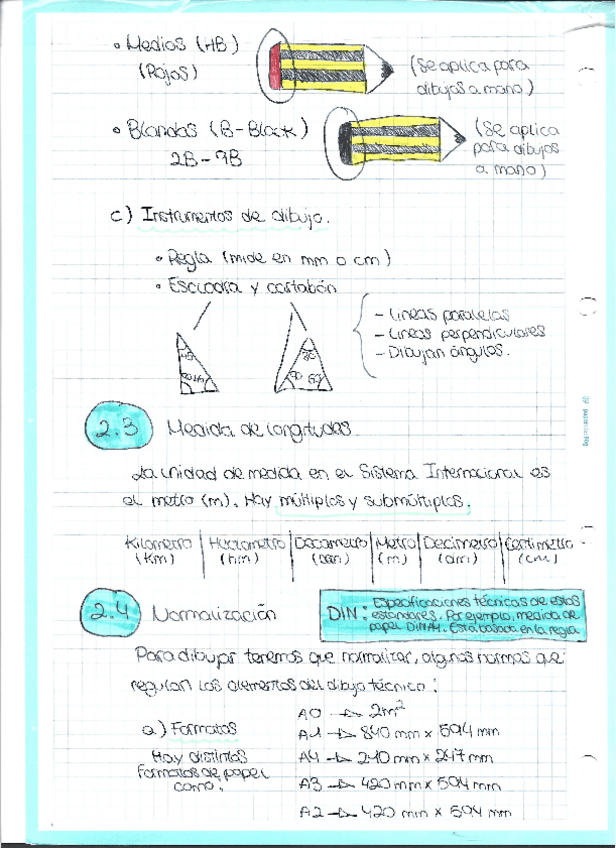 • Medios (HB)
(Rojos)
(Se aplica para
dibujos a mano)
• Blandos (B-Black)
2B-9B
(Se aplica
para dibujos
a mano)
c) Instrumentos de dibujo.
• Regla (mide en mm o cm)
• Escuadra y cartabón
- Lineas paralelas
- Lineas perpendiculares
- Dibujan ángulos.
2.3 Medida de longitudes
La unidad de medida en el Sistema Internacional es
el metro (m). Hay múltiplos y submúltiplos.
Kilometro | Hectometro | Decametro | Metro | Decimetro | Centimetro
(Km) (hm) (dam) (m) (dm) (cm)
2.4 Normalización
DIN: Especificaciones técnicas de estos
estándares. Por ejemplo, medida de
papel DINA4. Está basada en la regla
Para dibujar tenemos que normalizar, algunas normas que
regulan los elementos del dibujo técnico:
a) Formatos
Hay distintos
formatos de papel
como:
A0 → 2m²
A1 → 840 mm x 594 mm
A4 → 210 mm x 297 mm
A3 → 420 mm x 594 mm
A2 → 420 mm x 594 mm